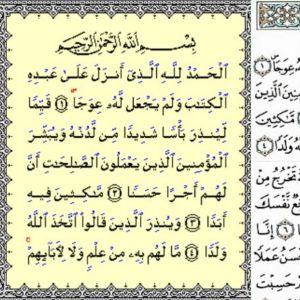 بِسْمِ ٱللَّهِ ٱلرَّحْمَٰنِ ٱلرَّحِيمِ
ٱلْحَمْدُ لِلَّهِ ٱلَّذِىٓ أَنزَلَ عَلَىٰ عَبْدِهِ
ٱلْكِتَٰبَ وَلَمْ يَجْعَل لَّهُۥ عِوَجَا ۜ ١ قَيِّمًا
لِّيُنذِرَ بَأْسًا شَدِيدًا مِّن لَّدُنْهُ وَيُبَشِّرَ
ٱلْمُؤْمِنِينَ ٱلَّذِينَ يَعْمَلُونَ ٱلصَّٰلِحَٰتِ أَنَّ
لَهُمْ أَجْرًا حَسَنًا ٢ مَّٰكِثِينَ فِيهِ
أَبَدًا ٣ وَيُنذِرَ ٱلَّذِينَ قَالُوا۟ ٱتَّخَذَ ٱللَّهُ
وَلَدًا ٤ مَّا لَهُم بِهِۦ مِنْ عِلْمٍ وَلَا لِـَٔابَآئِهِمْ ۚ
عِوَجَا ۜ ١
ٱلَّذِينَ
مَّٰكِثِينَ
وَلَدًا ٤
تَخْرُجُ مِنْ
نَّفْسَكَ
٦ إِنَّا
عَمَلًا
حَسِبْتَ